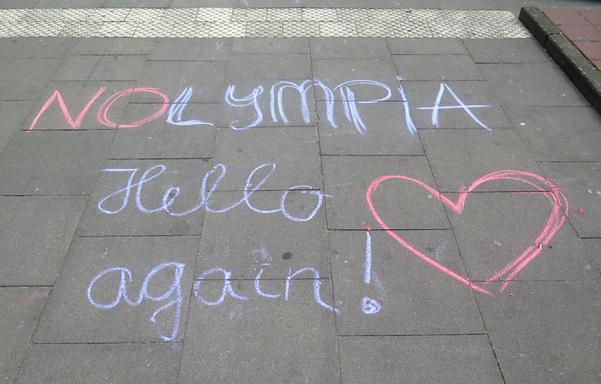 NOLYMPIA
Hello
again!